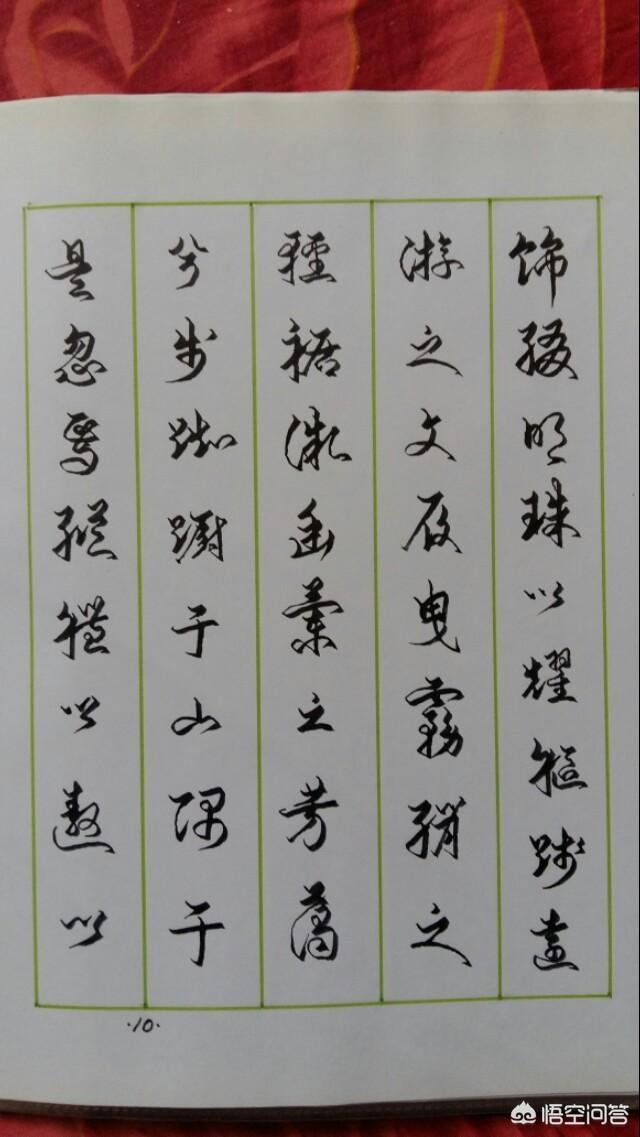 饰缀明珠以耀躯践远
游之文履曳雾绡之
轻裾微幽兰之芳蔼
兮步踟蹰于山隅于
是忽焉纵体以遨以
·10·
悟空问答